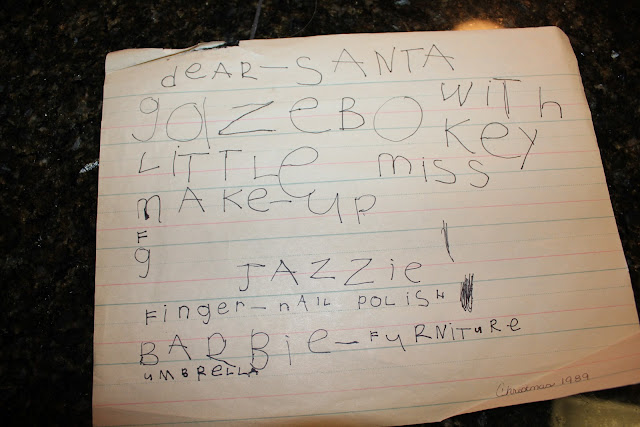 deAR-SANTA
gazeBO WiTh
Key
LiTTLe miss
mAKe-up
F
g
JAZZie
Finger-nAiL POLISH
BARBie-FuRNiTuRe
uMBRELLA
Christmas 1989